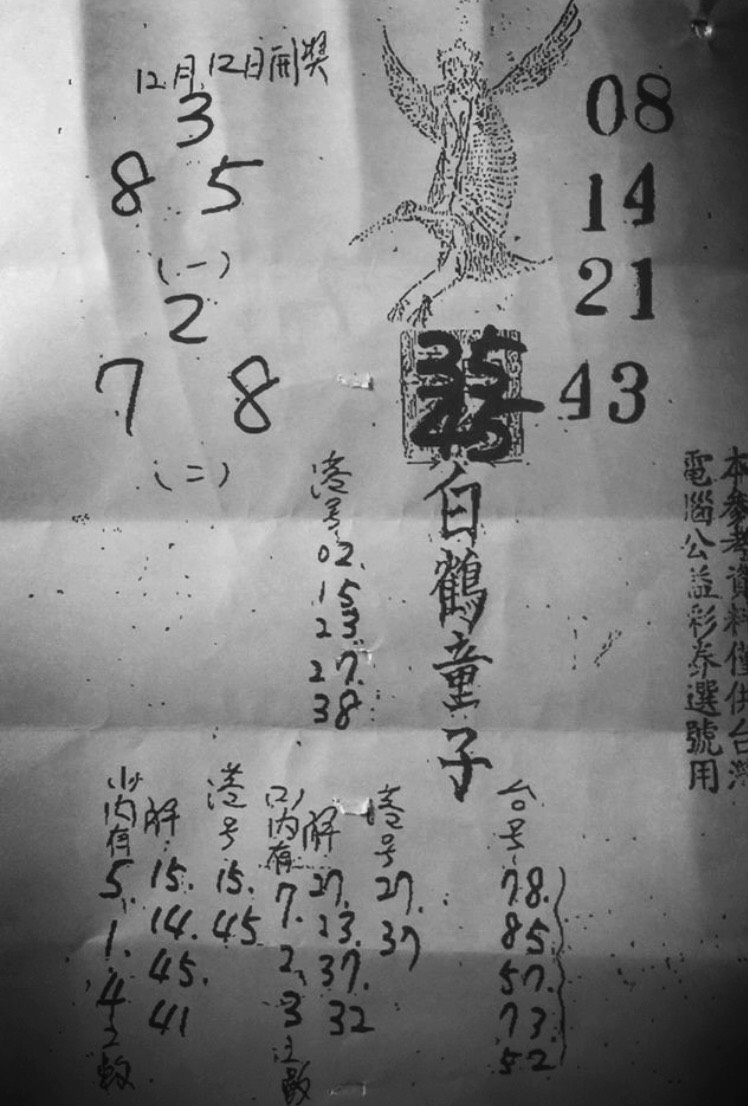 12月12日開獎
3
8 5
(一)
2
7 8
(二)
08
14
21
43
35
45
白鶴童子
本參考資料僅供台灣
電腦公益彩券選號用
港号
02.
15
23
27.
38
台号
78.
85
57.
73.
52
港号
27.
37
解
27.
23.
37.
32
(2)内有
7.
2
3
之數
港号
15.
45
解
15.
14.
45.
41
内有
5.
1.
4
之數